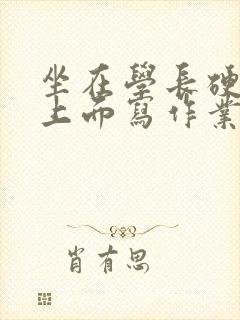 坐在學長硬
上而寫作業
肖有思